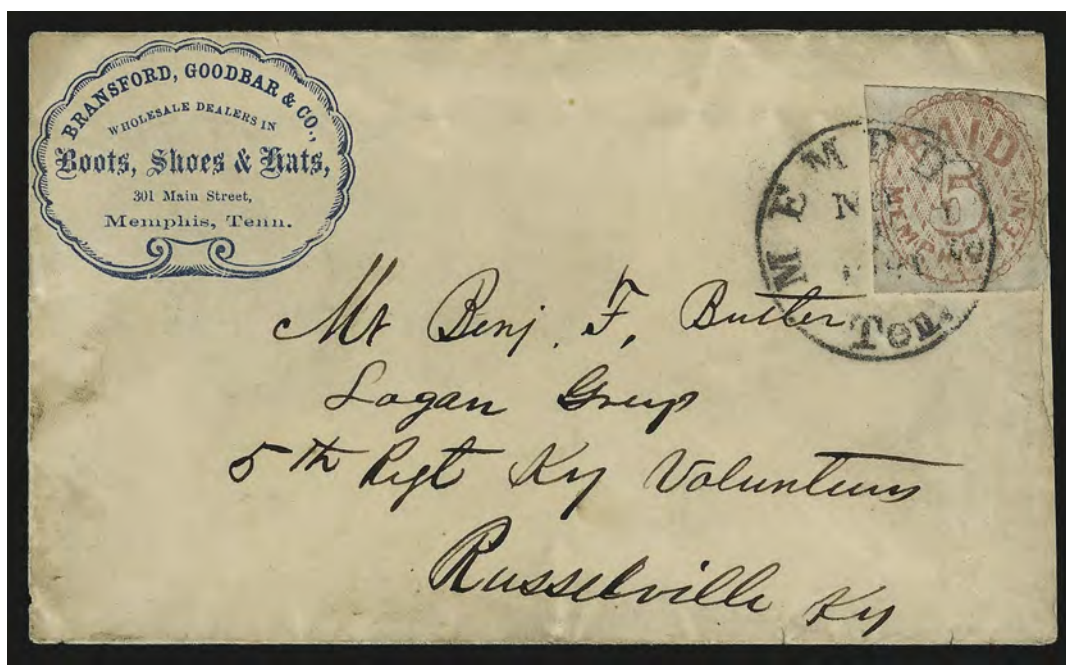 BRANSFORD, GOODBAR & CO.,
WHOLESALE DEALERS IN
Boots, Shoes & Hats,
301 Main Street,
Memphis, Tenn.
PAID
5
MEMPHIS TENN
MEMPHIS
Ten.
Mr Benj. F. Butler
Logan Greys
5th Regt Ky Volunteers
Russelville Ky